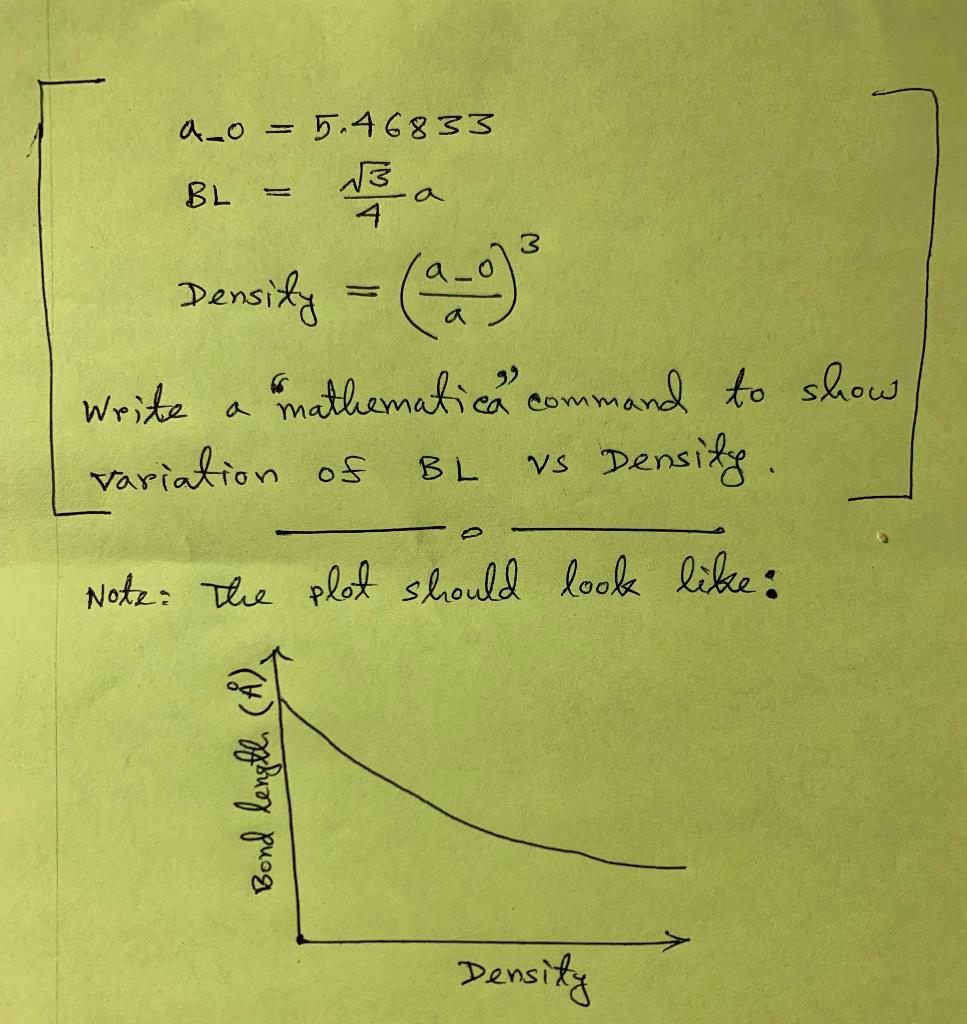 a_0 = 5.46833
BL = √3/4 a
Density = (a_0/a)^3
Write a "mathematica" command to show
variation of BL vs Density.
Note: The plot should look like:
Bond length (Å)
Density